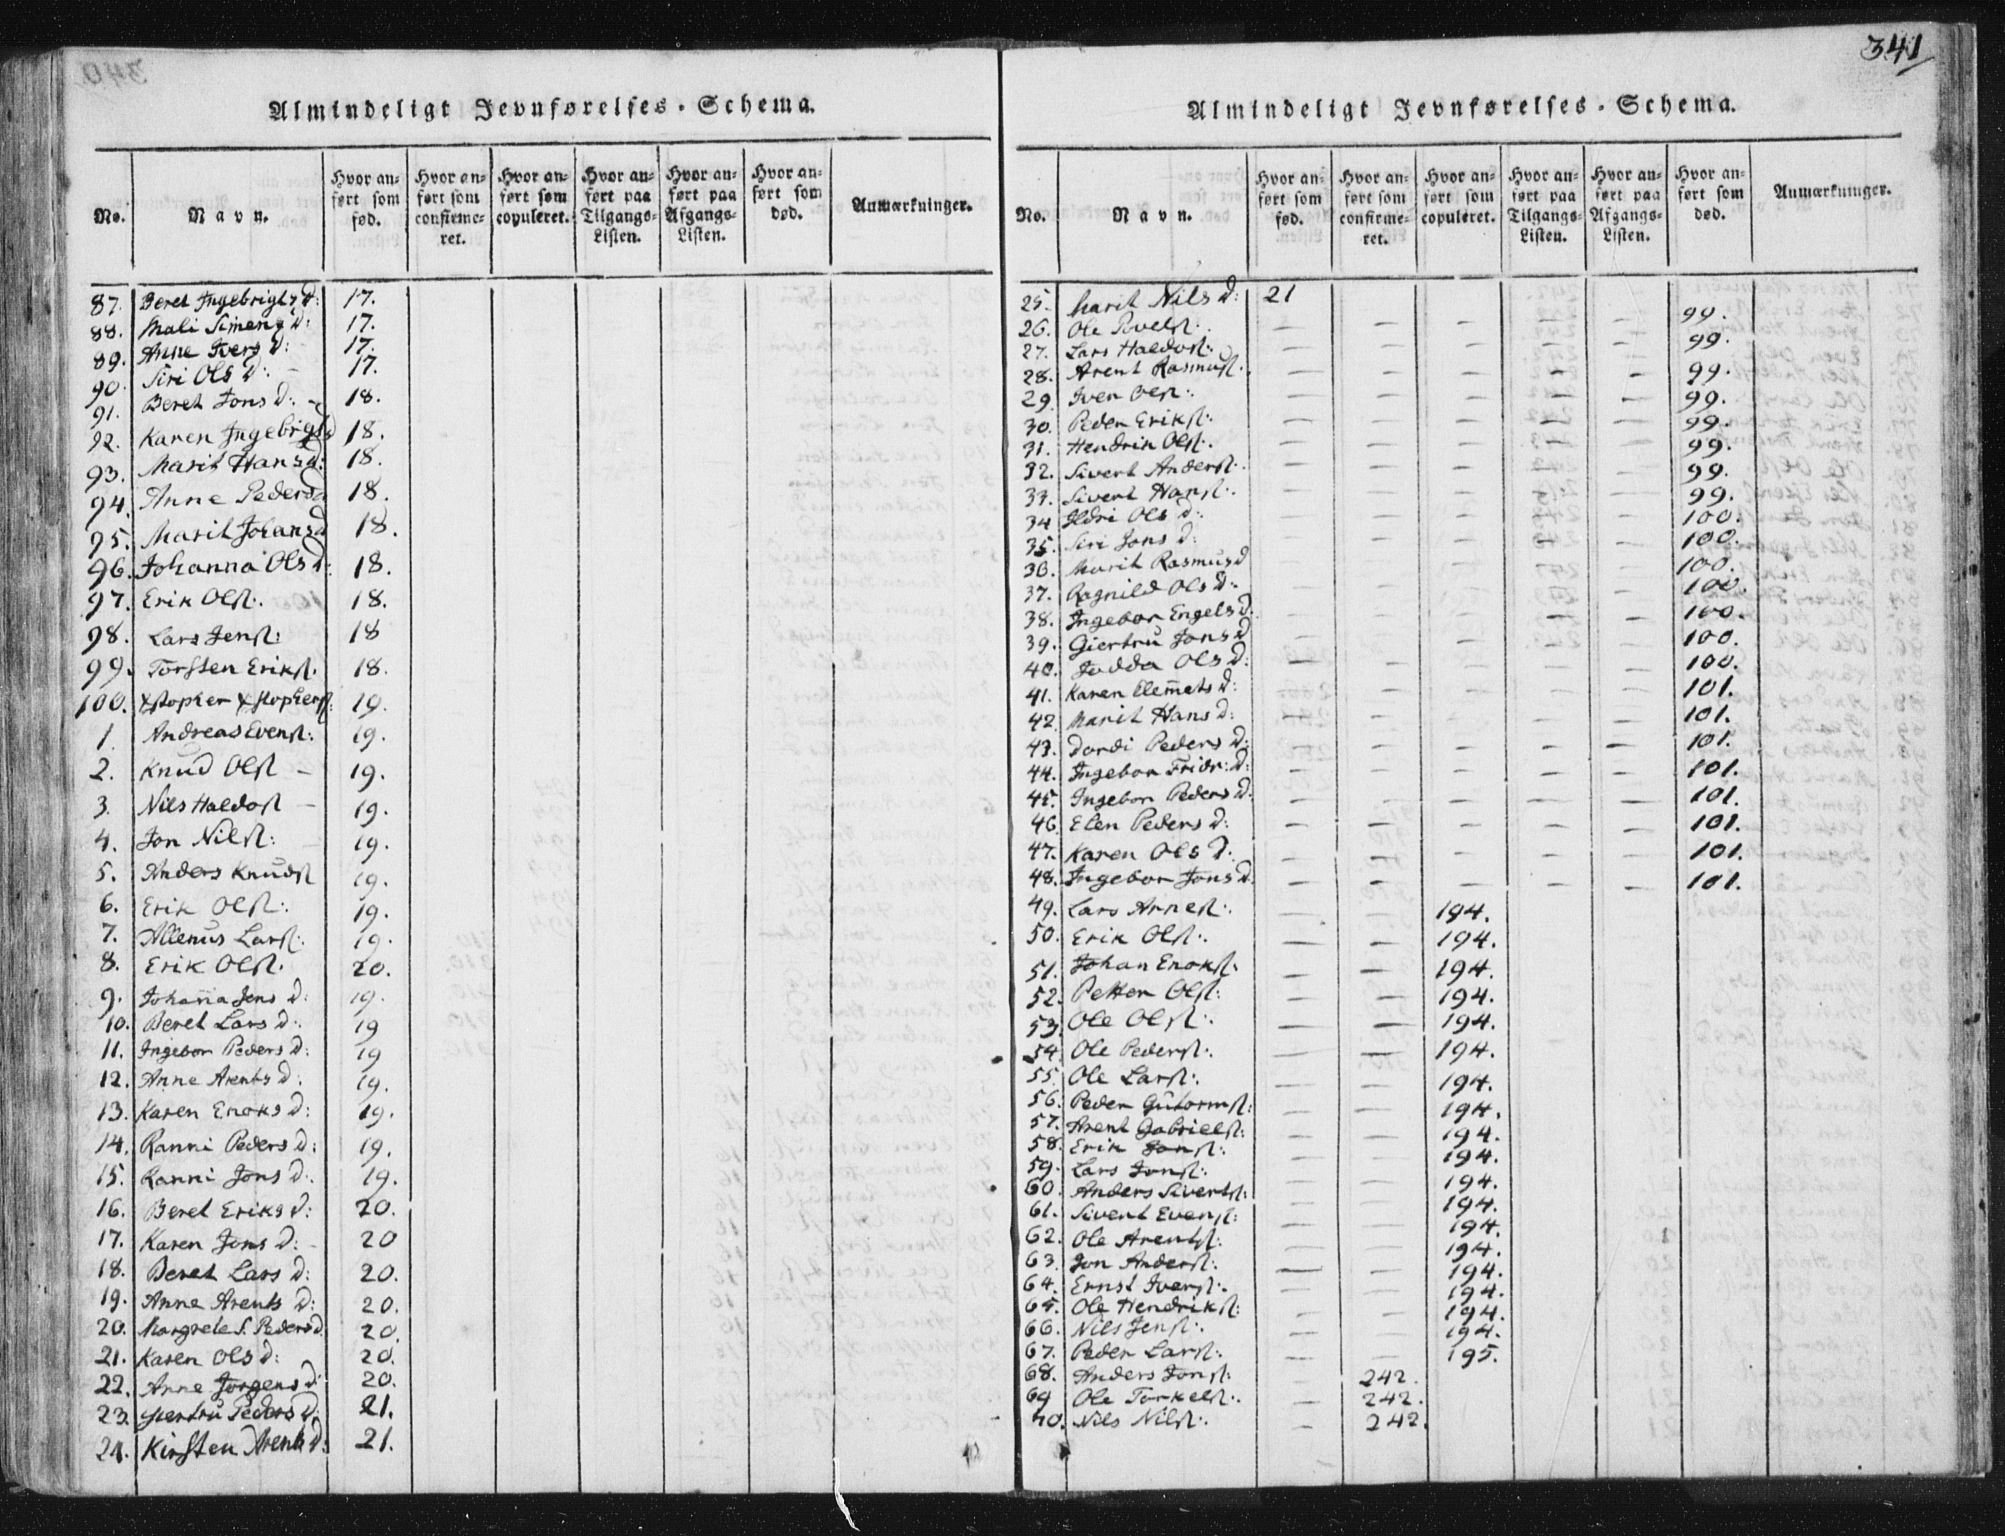 341
Almindeligt Jevnførelses-Schema.
No. Navn. Hvor anført som fød. Hvor anført som confirmeret. Hvor anført som copuleret. Hvor anført paa Tilgangs-Listen. Hvor anført paa Afgangs-Listen. Hvor anført som død. Anmærkninger.
87. Beret Ingebrigts d: 17.
88. Mali Simens d: 17.
89. Anne Ivers d: 17.
90. Siri Ols d: 17.
91. Beret Jons d: 18.
92. Karen Ingebrigts d 18.
93. Marit Hans d: 18.
94. Anne Peders d 18.
95. Marit Johans d 18.
96. Johanna Ols d: 18.
97. Erik Olſt: 18.
98. Lars Jenſt: 18
99. Torsten Erikſt. 18.
100. Xstopher Xstopherſt: 19.
1. Andreas Evenſt: 19.
2. Knud Olſt – 19.
3. Nils Haldoſt – 19.
4. Jon Nilſt: 19.
5. Anders Knudſt 19.
6. Erik Olſt: 19.
7. Allenus Larſt: 19.
8. Erik Olſt. 20.
9. Johanna Jens d: 19.
10. Beret Lars d: 19
11. Ingebor Peders d: 19
12. Anne Arents d: 19.
13. Karen Enoks d: 19.
14. Ranni Peders d: 19.
15. Ranni Jons d: 19.
16. Beret Eriks d: 20.
17. Karen Jons d: 20
18. Beret Lars d: 20.
19. Anne Arents d: 20.
20. Margrete S. Peders d 20.
21. Karen Ols d: 20.
22. Anne Jorgens d 20.
23. Giertru Peders d: 21.
24. Kirsten Arents d: 21.
Almindeligt Jevnførelses-Schema.
No. Navn. Hvor anført som fød. Hvor anført som confirmeret. Hvor anført som copuleret. Hvor anført paa Tilgangs-Listen. Hvor anført paa Afgangs-Listen. Hvor anført som død. Anmærkninger.
25. Marit Nils d: 21
26. Ole Povelſt: – – – – – 99.
27. Lars Haldoſt: – – – – – 99.
28. Arent Rasmuſt: – – – – – 99.
29. Iver Olſt: – – – – – 99.
30. Peder Erikſt: – – – – – 99.
31. Hendrik Olſt: – – – – – 99.
32. Sivert Anderſt: – – – – – 99.
33. Sivert Hanſt: – – – – – 99.
34. Ildri Ols d: – – – – – 100.
35. Siri Jons d: – – – – – 100.
36. Marit Rasmus d – – – – – 100.
37. Ragnild Ols d: – – – – – 100.
38. Ingebor Engels d. – – – – – 100.
39. Giertru Jons d – – – – – 100.
40. Jodda Ols d: – – – – – 100.
41. Karen Clemets d: – – – – – 101.
42. Marit Hans d: – – – – – 101.
43. Dordi Peders d: – – – – – 101.
44. Ingebor Fridr: d: – – – – – 101.
45. Ingebor Peders d. – – – – – 101.
46. Elen Peders d: – – – – – 101.
47. Karen Ols d: – – – – – 101.
48. Ingebor Jons d. – – – – – 101.
49. Lars Arneſt: – – 194.
50. Erik Olſt: – – 194.
51. Johan Enokſt: – – 194.
52. Petter Olſt: – – 194.
53. Ole Olſt: – – 194.
54. Ole Pederſt: – – 194.
55. Ole Larſt: – – 194.
56. Peder Gutormſt: – – 194.
57. Arent Gabrielſt: – – 194.
58. Erik Jonſt: – – 194.
59. Lars Jonſt: – – 194.
60. Anders Sivertſt: – – 194.
61. Sivert Evenſt: – – 194.
62. Ole Arentſt: – – 194.
63. Jon Anderſt: – – 194.
64. Ernst Iverſt: – – 194.
65. Ole Hendrikſt: – – 194.
66. Nils Jenſt: – – 194.
67. Peder Larſt: – – 195.
68. Anders Jonſt: – 242.
69 Ole Torkelſt: – 242.
70. Nils Nilſt: – 242.